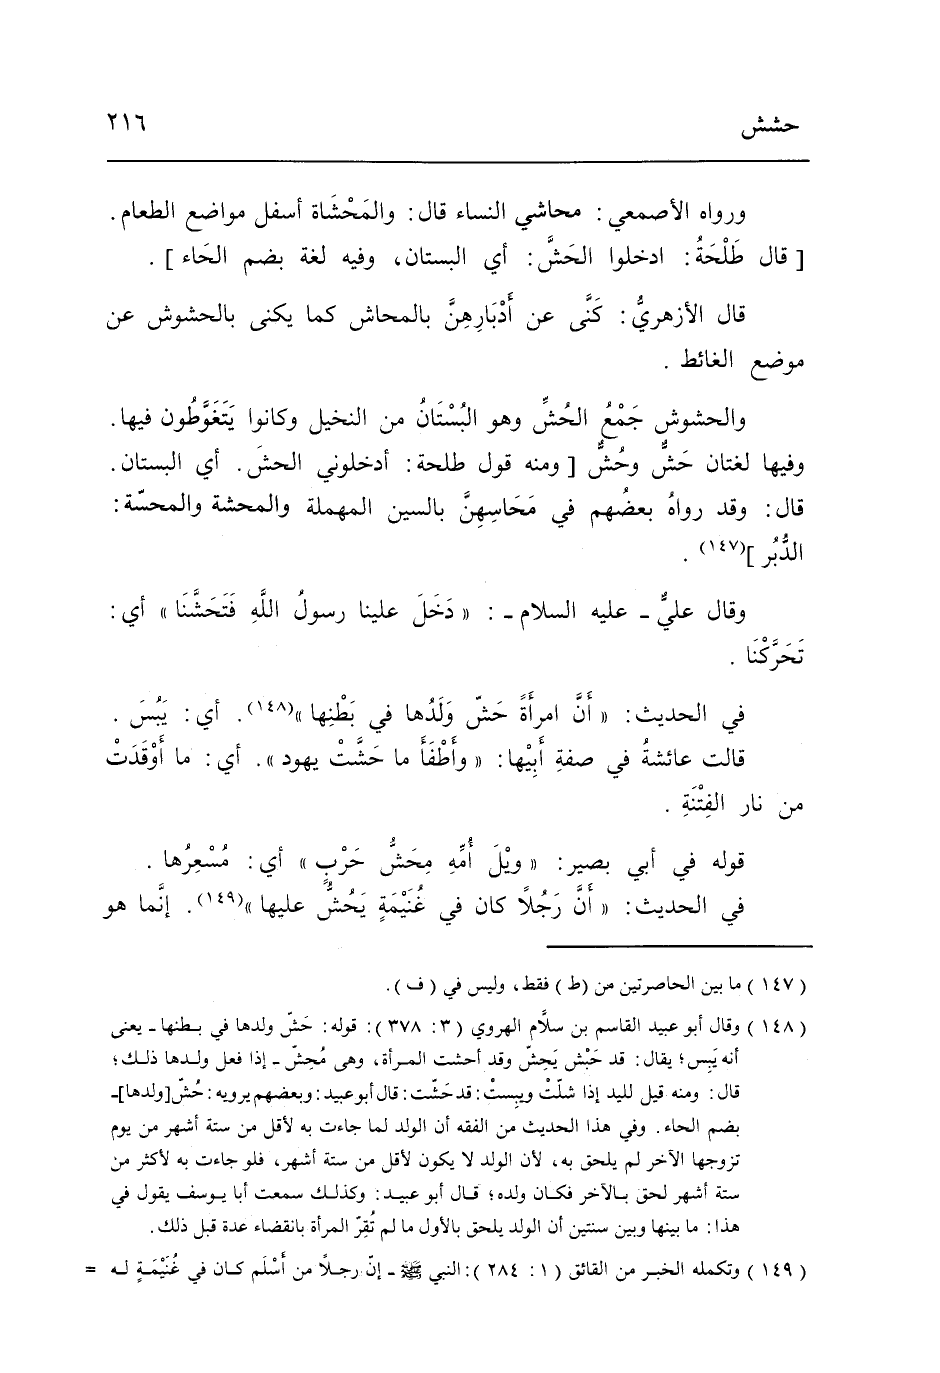 حشش
٢١٦
ورواه الأصمعي: محاشي النساء قال: والمَحْشَاة أسفل مواضع الطعام.
[ قال طَلْحَةُ: ادخلوا الحَشَّ: أي البستان، وفيه لغة بضم الحَاء ] .
قال الأزهريُّ: كَنَّى عن أَدْبَارِهِنَّ بالمحاش كما يكنى بالحشوش عن
موضع الغائط .
والحشوش جَمْعُ الحُشِّ وهو البُسْتَانُ من النخيل وكانوا يَتَغَوَّطُون فيها.
وفيها لغتان حَشٌّ وحُشٌّ [ ومنه قول طلحة: أدخلوني الحشَ. أي البستان.
قال: وقد رواهُ بعضُهم في مَحَاسِهِنَّ بالسين المهملة والمحشة والمحسّة:
الدُّبُر ](١٤٧) .
وقال عليٌّ ـ عليه السلام ـ : « دَخَلَ علينا رسولُ اللَّهِ فَتَحَشْنَا » أي:
تَحَرَّكْنَا .
في الحديث: « أَنَّ امرأَةً حَشّ وَلَدُها في بَطْنِها »(١٤٨). أي: يَبُسَ .
قالت عائشةُ في صفةِ أَبِيْها: « وأَطْفَأَ ما حَشَّتْ يهود ». أي: ما أَوْقَدَتْ
من نار الفِتْنَةِ .
قوله في أبي بصير: « ويْلَ أُمِّهِ مِحَشُّ حَرْبٍ » أي: مُسْعِرُها .
في الحديث: « أَنَّ رَجُلًا كان في غُنَيْمَةٍ يَحُشُّ عليها »(١٤٩). إنَّما هو
(١٤٧) ما بين الحاصرتين من (ط) فقط، وليس في (ف).
(١٤٨) وقال أبو عبيد القاسم بن سلَّام الهروي (٣: ٣٧٨): قوله: حَشّ ولدها في بطنها ـ يعنى
أنه يَبِس؛ يقال: قد حَبْش يَحِشّ وقد أحشت المرأة، وهى مُحِشّ ـ إذا فعل ولدها ذلك؛
قال: ومنه قيل لليد إذا شلّتْ ويبستْ: قد حَشّت: قال أبو عبيد: وبعضهم يرويه: حُشّ[ولدها]ـ
بضم الحاء. وفي هذا الحديث من الفقه أن الولد لما جاءت به لأقل من ستة أشهر من يوم
تزوجها الآخر لم يلحق به، لأن الولد لا يكون لأقل من ستة أشهر، فلو جاءت به لأكثر من
ستة أشهر لحق بالآخر فكان ولده؛ قال أبو عبيد: وكذلك سمعت أبا يوسف يقول في
هذا: ما بينها وبين سنتين أن الولد يلحق بالأول ما لم تُقِرّ المرأة بانقضاء عدة قبل ذلك.
(١٤٩) وتكمله الخبر من الفائق (١: ٢٨٤): النبي ﷺ ـ إنّ رجلًا من أَسْلَم كان في غُنَيْمَةٍ له =